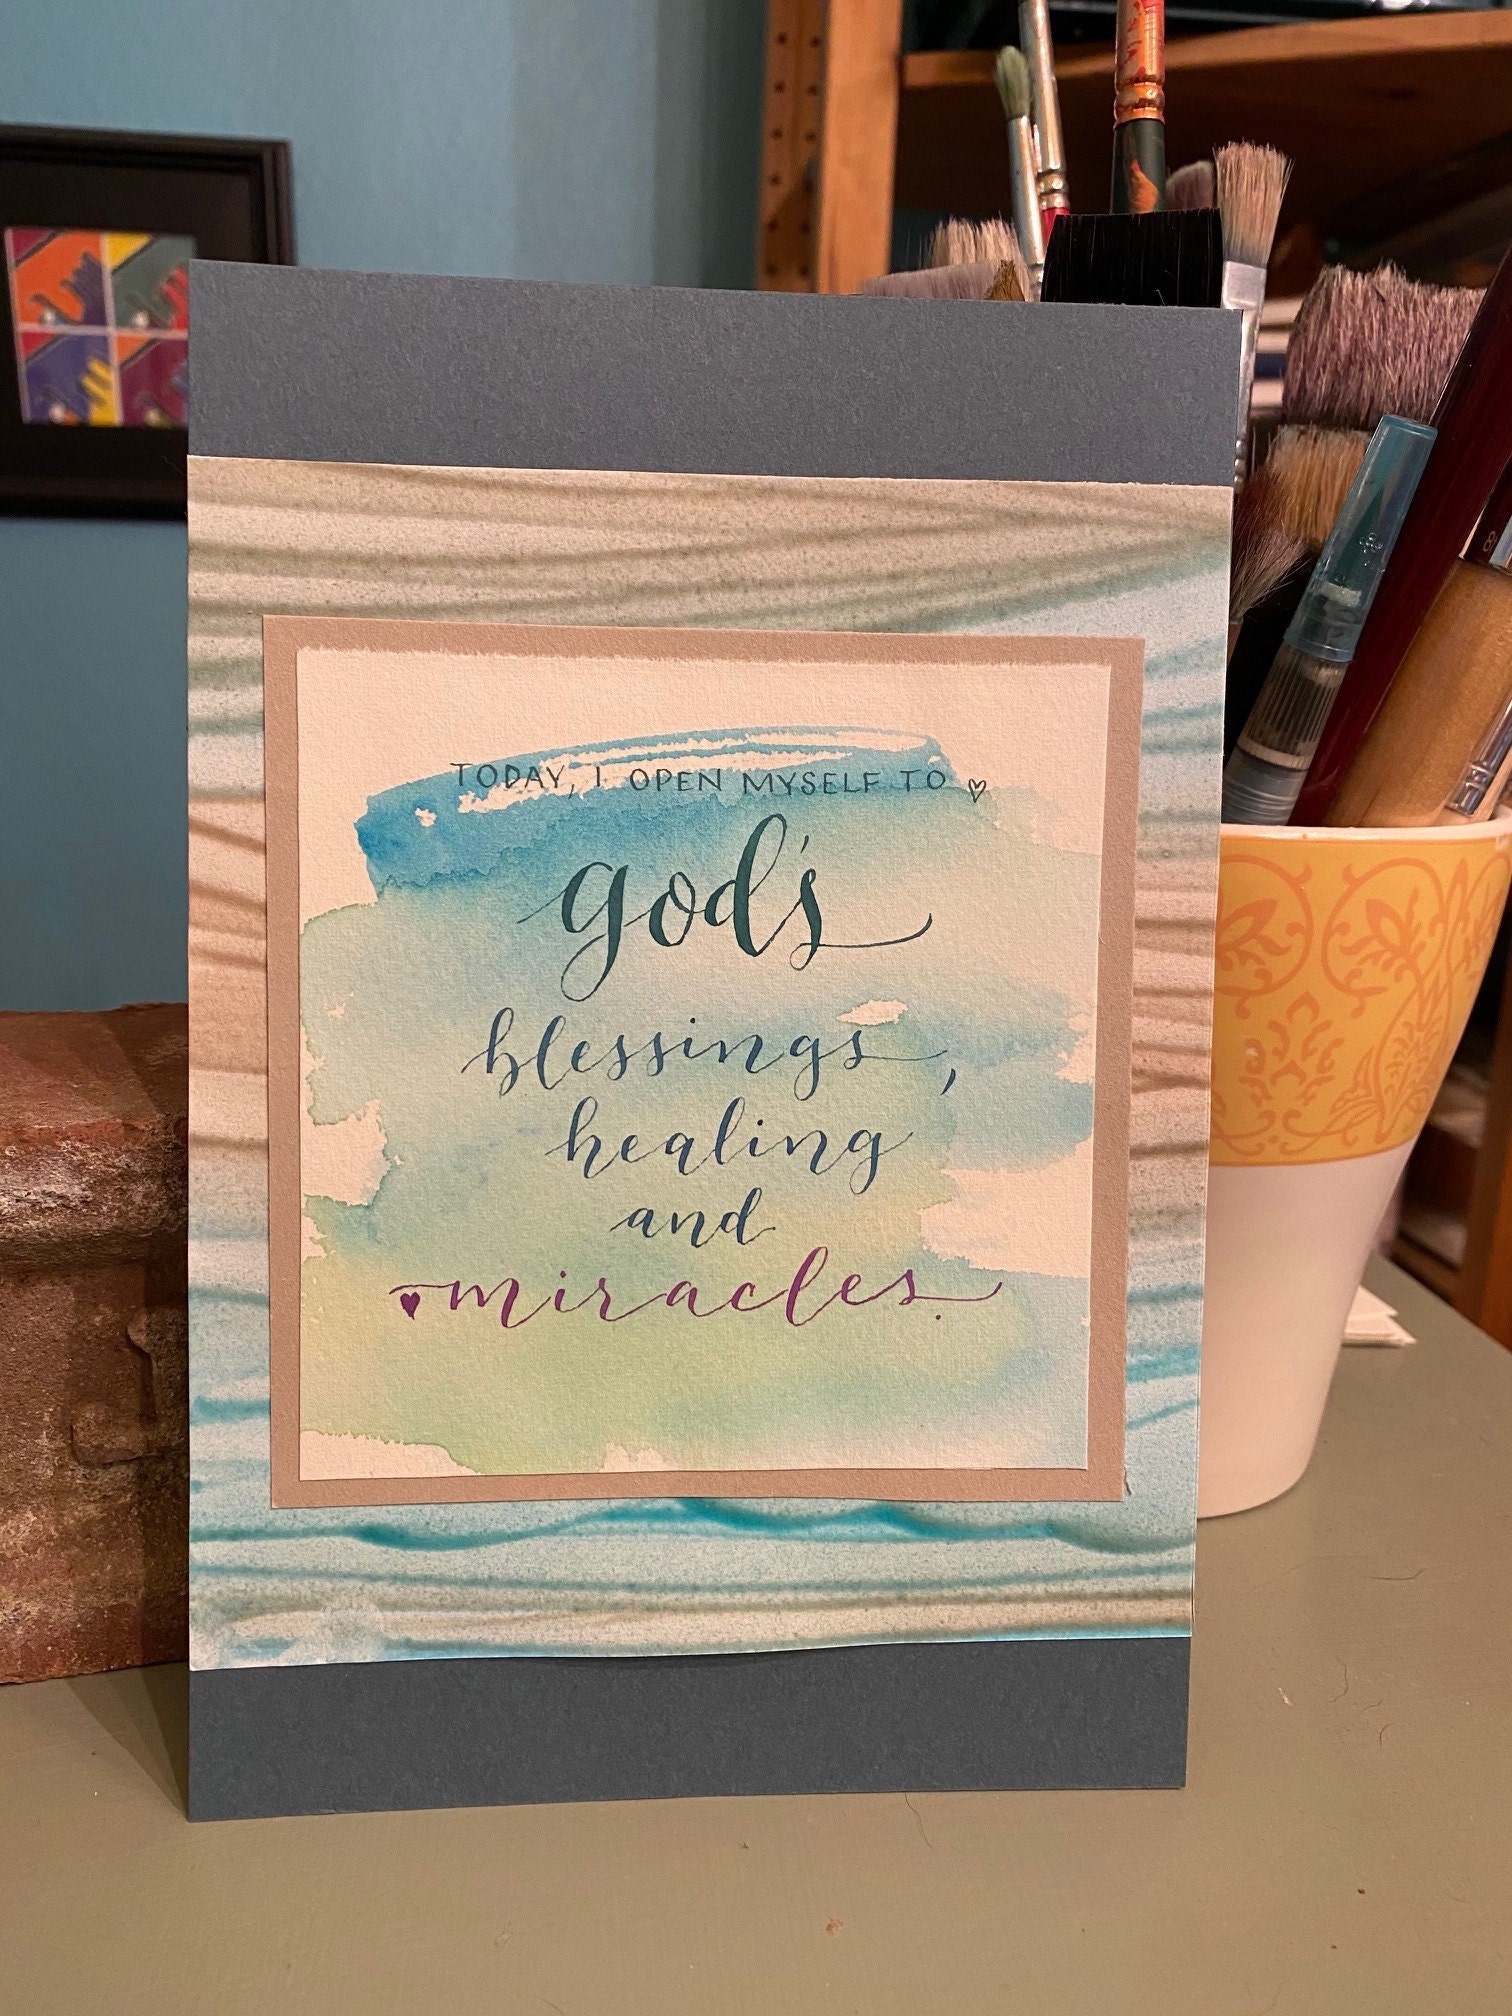 TODAY, I OPEN MYSELF TO
god's
blessings,
healing
and
miracles.